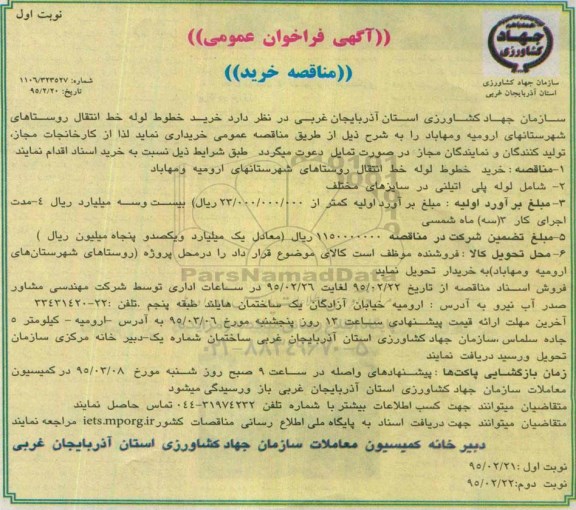 نوبت اول
((آگهی فراخوان عمومی))
((مناقصه خرید))
جهاد کشاورزی
سازمان جهاد کشاورزی
استان آذربایجان غربی
شماره: ۱۱۰۶/۳۲۳۵۲۷
تاریخ: ۹۵/۲/۲۰
سازمان جهاد کشاورزی استان آذربایجان غربی در نظر دارد خرید خطوط لوله خط انتقال روستاهای
شهرستانهای ارومیه ومهاباد را به شرح ذیل از طریق مناقصه عمومی خریداری نماید لذا از کارخانجات مجاز،
تولید کنندگان و نمایندگان مجاز در صورت تمایل دعوت میگردد طبق شرایط ذیل نسبت به خرید اسناد اقدام نمایند
۱-مناقصه : خرید خطوط لوله خط انتقال روستاهای شهرستانهای ارومیه ومهاباد
۲- شامل لوله پلی اتیلنی در سایزهای مختلف
۳-مبلغ بر آورد اولیه : مبلغ بر آورد اولیه کمتر از ۲۳/۰۰۰/۰۰۰/۰۰۰ ریال) بیست وسه میلیارد ریال ۴-مدت
اجرای کار ۳(سه) ماه شمسی
۵-مبلغ تضمین شرکت در مناقصه ۱۱۵۰۰۰۰۰۰۰ ریال (معادل یک میلیارد ویکصدو پنجاه میلیون ریال )
۶-محل تحویل کالا : فروشنده موظف است کالای موضوع قرار داد را درمحل پروژه (روستاهای شهرستان‌های
ارومیه ومهاباد)به خریدار تحویل نماید
فروش اسناد مناقصه از تاریخ ۹۵/۰۲/۲۲ لغایت ۹۵/۰۲/۲۶ در ساعات اداری توسط شرکت مهندسی مشاور
صدر آب نیرو به آدرس : ارومیه خیابان آزادگان یک ساختمان هایلند طبقه پنجم .تلفن :۲۲-۳۳۴۳۱۴۲۰
آخرین مهلت ارائه قیمت پیشنهادی تا ساعت ۱۳ روز پنجشنبه مورخ ۹۵/۰۳/۰۶ به آدرس –ارومیه - کیلومتر ۵
جاده سلماس ،سازمان جهاد کشاورزی استان آذربایجان غربی ساختمان شماره یک-دبیر خانه مرکزی سازمان
تحویل ورسید دریافت نمایند
زمان بازگشایی پاکت‌ها : پیشنهادهای واصله در ساعت ۹ صبح روز شنبه مورخ ۹۵/۰۳/۰۸ در کمیسیون
معاملات سازمان جهاد کشاورزی استان آذربایجان غربی باز ورسیدگی میشود
متقاضیان میتوانند جهت کسب اطلاعات بیشتر با شماره تلفن ۳۱۹۷۴۲۳۲-۰۴۴ تماس حاصل نمایند
متقاضیان میتوانند جهت دریافت اسناد به پایگاه ملی اطلاع رسانی مناقصات کشور iets.mporg.ir مراجعه نمایند
دبیر خانه کمیسیون معاملات سازمان جهاد کشاورزی استان آذربایجان غربی
نوبت اول :۹۵/۰۲/۲۱
نوبت دوم:۹۵/۰۲/۲۲
ParsNamadData